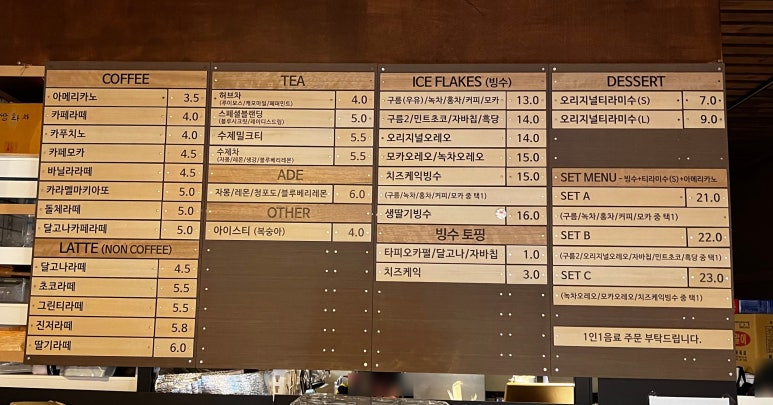 COFFEE
아메리카노 3.5
카페라떼 4.0
카푸치노 4.0
카페모카 4.5
바닐라라떼 4.5
카라멜마키아또 5.0
돌체라떼 5.0
달고나카페라떼 5.0
LATTE (NON COFFEE)
달고나라떼 4.5
초코라떼 5.5
그린티라떼 5.5
진저라떼 5.8
딸기라떼 6.0
TEA
허브차 4.0
(루이보스/캐모마일/페퍼민트)
스페셜블랜딩 5.0
(블루시크릿/레이디스드림)
수제밀크티 5.5
수제차 5.5
(자몽/레몬/생강/블루베리레몬)
ADE
자몽/레몬/청포도/블루베리레몬 6.0
OTHER
아이스티 (복숭아) 4.0
ICE FLAKES (빙수)
구름(우유)/녹차/홍차/커피/모카 13.0
구름2/민트초코/자바칩/흑당 14.0
오리지널오레오 14.0
모카오레오/녹차오레오 15.0
치즈케익빙수 15.0
(구름/녹차/홍차/커피/모카 중 택1)
생딸기빙수 16.0
빙수 토핑
타피오카펄/달고나/자바칩 1.0
치즈케익 3.0
DESSERT
오리지널티라미수(S) 7.0
오리지널티라미수(L) 9.0
SET MENU - 빙수+티라미수(S)+아메리카노
SET A 21.0
(구름/녹차/홍차/커피/모카 중 택1)
SET B 22.0
(구름2/오리지널오레오/자바칩/민트초코/흑당 중 택1)
SET C 23.0
(녹차오레오/모카오레오/치즈케익빙수 중 택1)
1인1음료 주문 부탁드립니다.